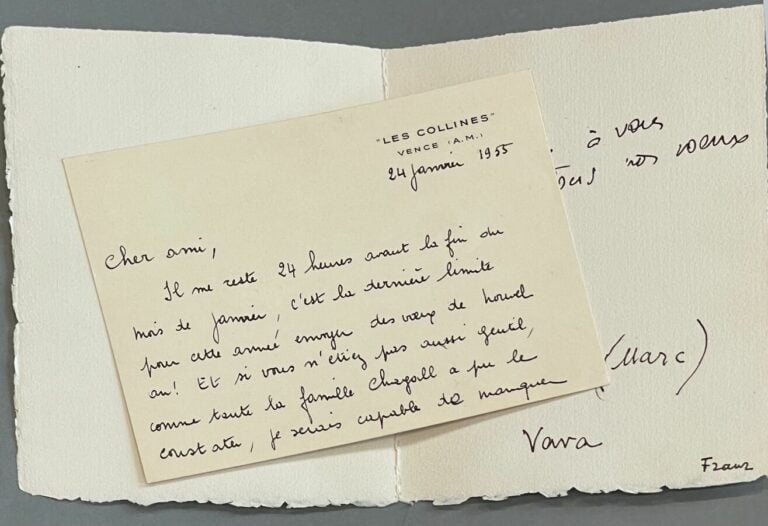 "LES COLLINES"
VENCE (A.M.)
24 janvier 1955
Cher ami,
Il me reste 24 heures avant la fin du
mois de janvier, c'est la dernière limite
pour cette année envoyer des vœux de nouvel
an! Et si vous n'étiez pas aussi gentil,
comme toute la famille Chagall a pu le
constater, je serais capable de manquer
à vous
tous nos vœux
(Marc)
Vava
Franz